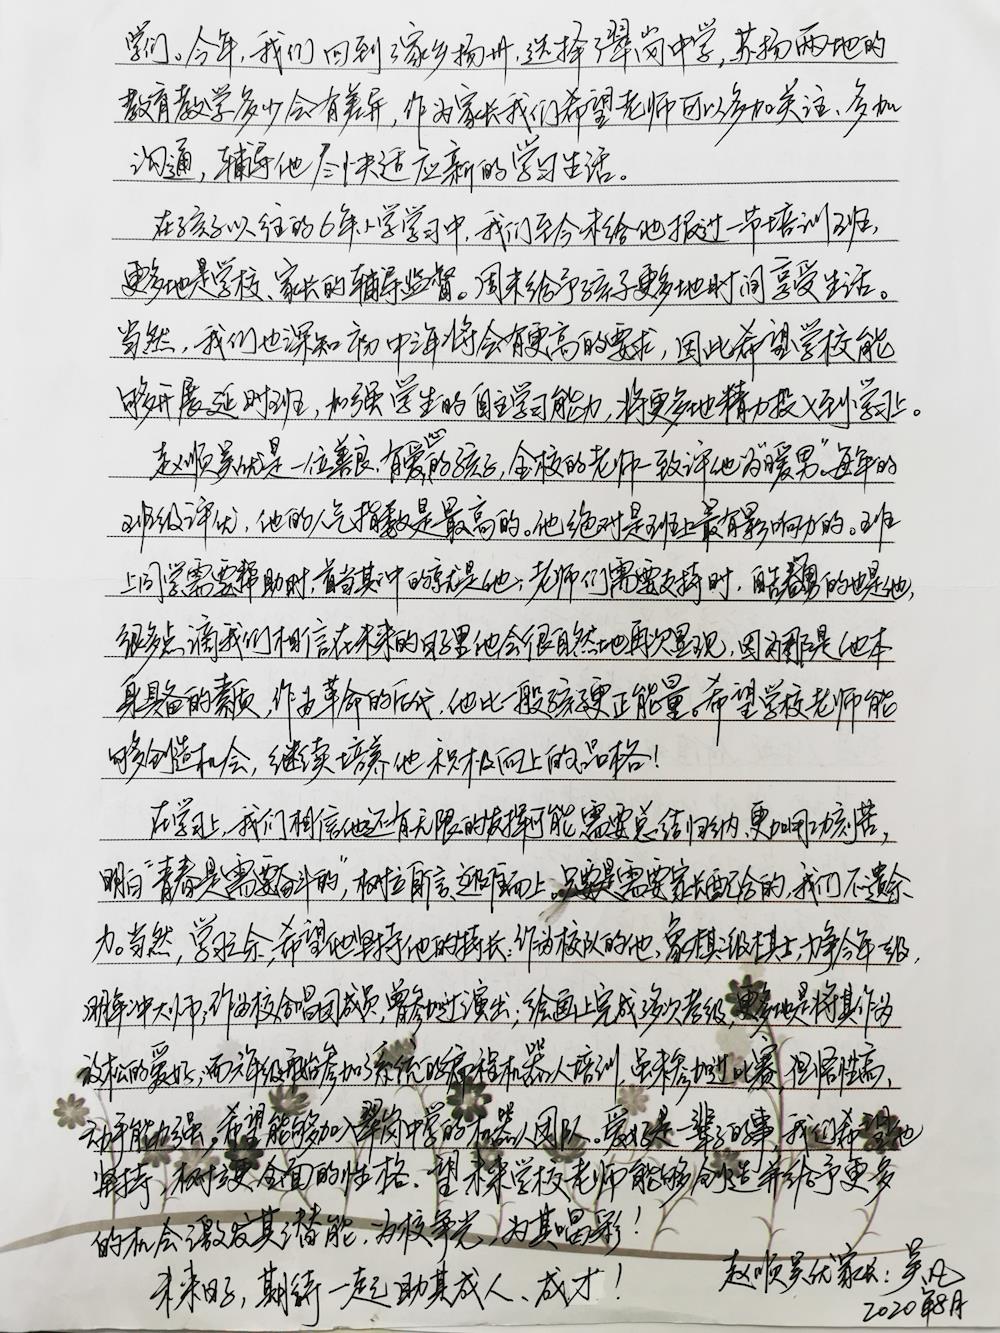 学们。今年,我们回到了家乡扬州,选择了翠岗中学,苏扬两地的
教育教学多少会有差异,作为家长我们希望老师可以多加关注、多加
沟通,辅导他尽快适应新的学习生活。
在孩子以往的6年小学学习中,我们至今未给他报过一节培训班,
更多地是学校、家长的辅导监督。周末给予孩子更多地时间享受生活。
当然,我们也深知初中生将会有更高的要求,因此希望学校能
够开展延时班,加强学生的自主学习能力,将更多地精力投入到学习上。
赵顺吴优是一位善良、有爱心的孩子,全校的老师一致评他为“暖男”。每年的
班级评优,他的人气指数是最高的。他绝对是班上最有影响力的。班
上同学需要帮助时,首当其冲的就是他;老师们需要支持时,的也是他,
很多点滴我们相信在未来的日子里他会很自然地再次显现,因为那是他本
身具备的素质,作为革命的后代,他比一般孩子更正能量。希望学校老师能
够创造机会,继续培养他积极向上的品格!
在学习上,我们相信他还有无限的发挥可能,需要总结归纳、更加用功刻苦,
明白“青春是需要奋斗的”,树立自信,迎难而上。只要是需要家长配合的,我们不遗余
力。当然,学习之余,希望他坚持他的特长:作为校队的他,象棋二级棋士,力争今年一级,
明年冲大师;作为校合唱团成员,曾参加过演出;绘画上完成多次考级,更多地是将其作为
放松的爱好;而六年级开始参加了系统的编程机器人培训,虽未参加过比赛,但悟性高,
动手能力强,希望能够加入翠岗中学的机器人团队。爱好是一辈子的事,我们希望他
坚持,树立更全面的性格。望未来学校老师能够创造并给予更多
的机会激发其潜能,为校争光,为其喝彩!
未来日子,期待一起助其成人、成才!
赵顺吴优家长:吴凡
2020年8月